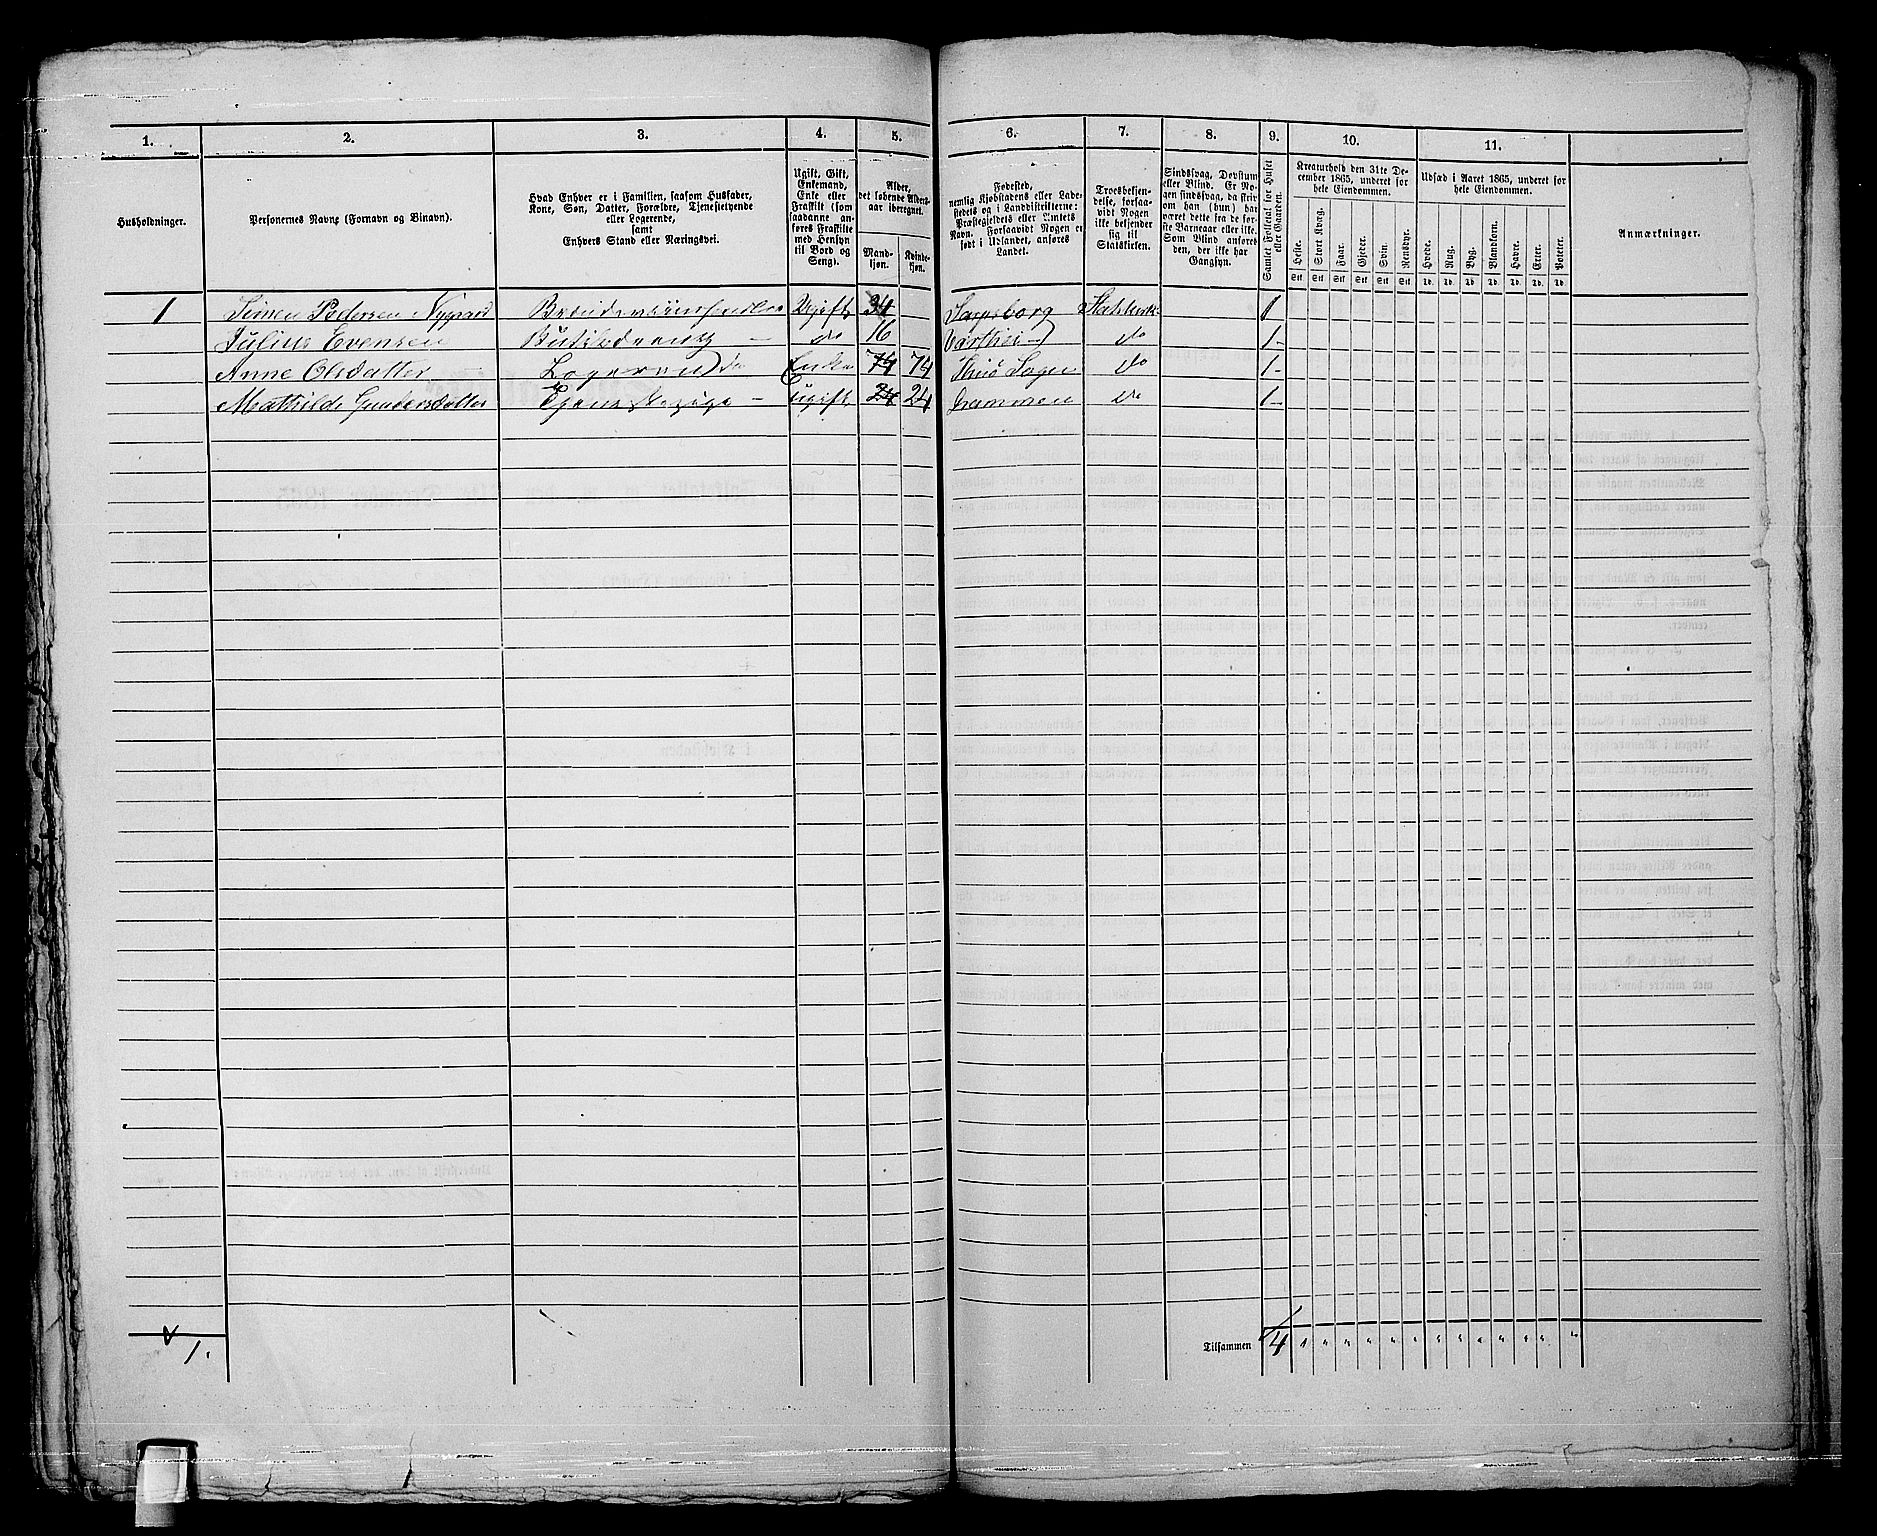 1.
2.
3.
4.
5.
6.
7.
8.
9.
10.
11.
Husholdninger.
Personernes Navne (Fornavn og Binavn).
Hvad Enhver er i Familien, saasom Husfader,
Kone, Søn, Datter, Forældre, Tjenestetyende
eller Logerende,
samt
Enhvers Stand eller Næringsvei.
Ugift, Gift,
Enkemand,
Enke eller
Fraskilt (som
saadanne an-
føres Fraskilte
med Hensyn
til Bord og
Seng).
Alder,
det løbende Alders-
aar iberegnet.
Mand-
kjøn.
Kvinde-
kjøn.
Fødested,
nemlig Kjøbstadens eller Lade-
stedets og i Landdistrikterne:
Præstegjeldets eller Amtets
Navn. Forsaavidt Nogen er
født i Udlandet, anføres
Landet.
Troesbekjen-
delse, forsaa-
vidt Nogen
ikke bekjender
sig til
Statskirken.
Sindssvag, Døvstum
eller Blind. Er No-
gen sindssvag, da skriv
om han (hun) har
været dette fra de før-
ste Barneaar eller ikke.
Som Blind anføres
den, der ikke har
Gangsyn.
Samlet Folketal for Huset
eller Gaarden.
Kreaturhold den 31te De-
cember 1865, underet for
hele Eiendommen.
Heste.
Stort Kvæg.
Faar.
Gjeder.
Svin.
Rensdyr.
Stk Stk Stk Stk Stk Stk
Udsæd i Aaret 1865, underet for
hele Eiendommen.
Hvede.
Rug.
Byg.
Blandkorn.
Havre.
Erter.
Poteter.
Td. Td. Td. Td. Td. Td. Td.
Anmærkninger.
1 Simen Pedersen Nygaard Brændeviinshandler Ugift 34 Sarpsborg Statskirk 1
Julius Evensen Butikdreng do 16 do 1
Anne Olsdatter Logerende Enke 74 74 do 1
Mathilde Gundersdatter Tjenestepige Ugift 24 24 Drammen do 1
1.
Tilsammen 4